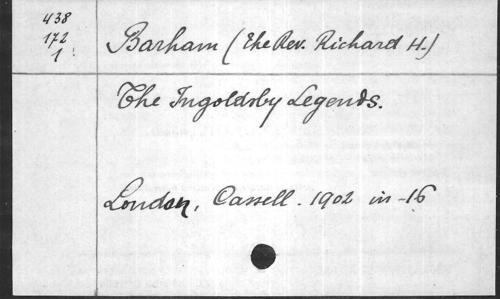 438
172
1
Barham (the Rev. Richard H.)
The Ingoldsby Legends.
London, Cassell. 1902 in-16